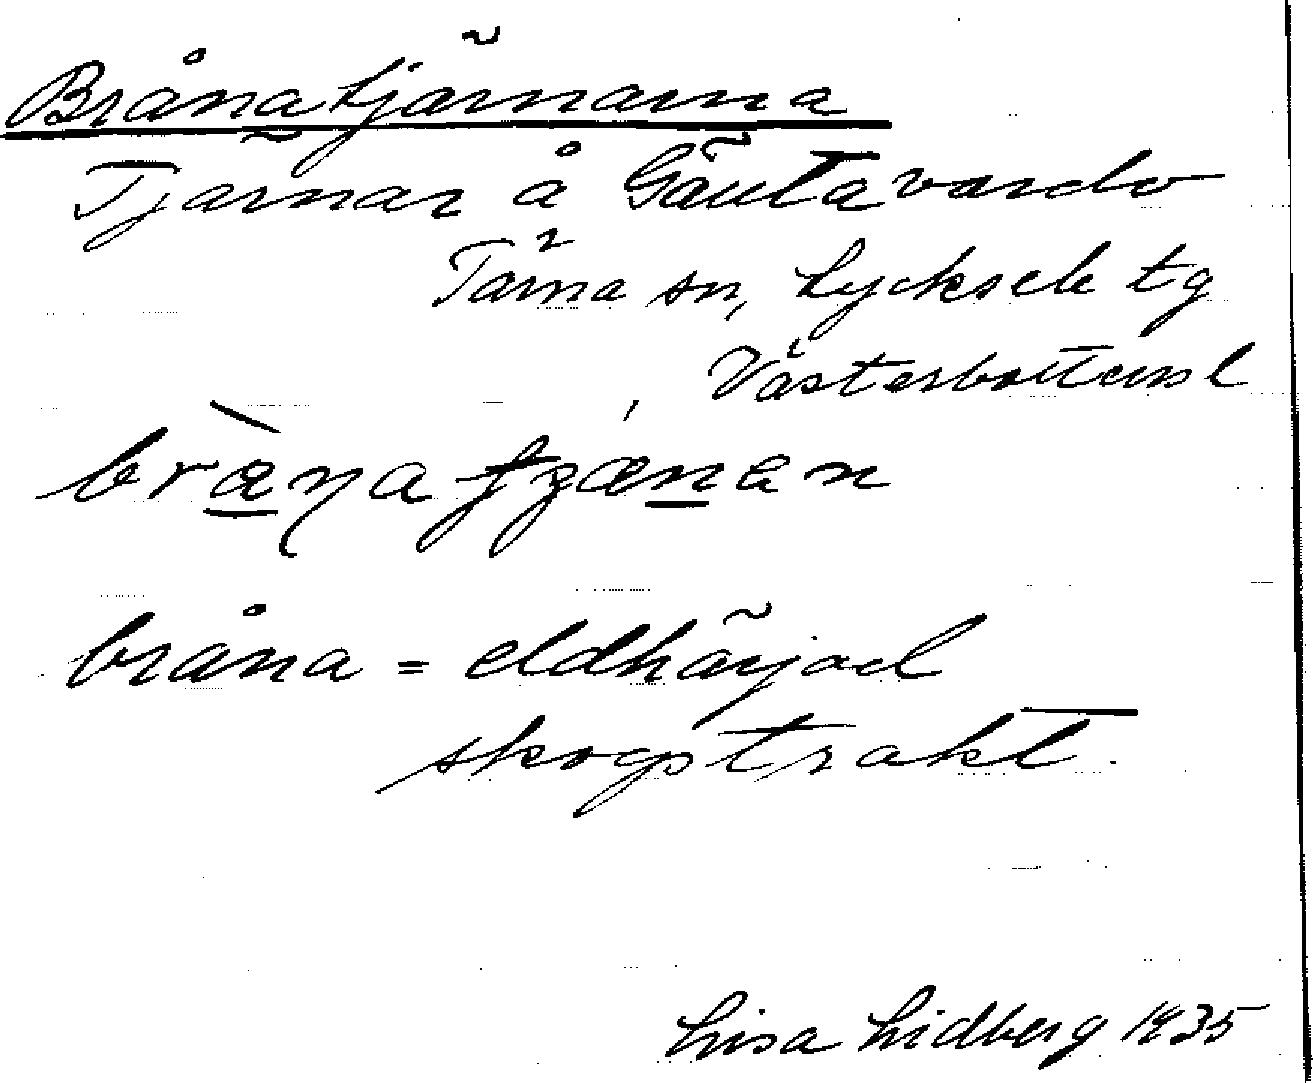 Brånatjärnarna
Tjärnar å Gäutavardo
Tärna sn, Lycksele tg
Västerbottens l
bråna = eldhärjad
skogstrakt.
Lisa Lidberg 1935